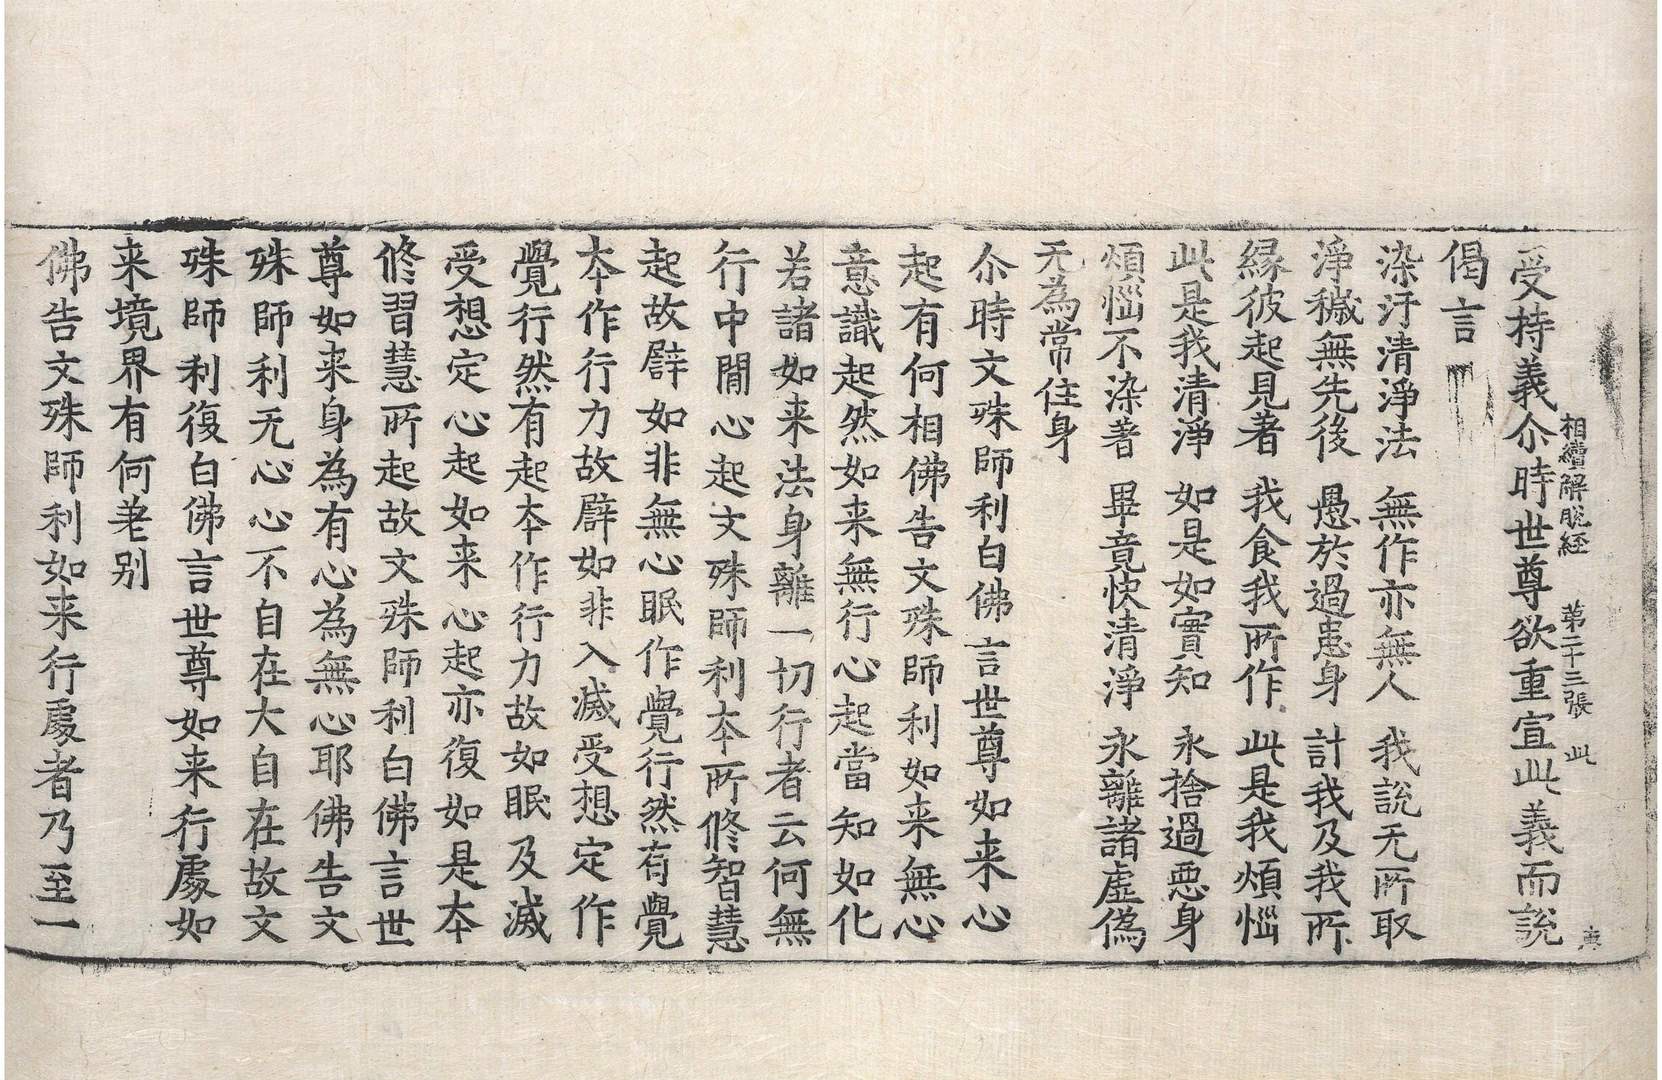 相續解脫経 苐二十三張 此
受持義尒時世尊欲重宣此義而說
偈言
染汙清淨法 無作亦無人 我說无所取
淨穢無先後 愚於過患身 計我及我所
縁彼起見著 我食我所作 此是我煩惱
此是我清淨 如是如實知 永捨過惡身
煩惱不染著 畢竟快清淨 永離諸虛偽
无為常住身
尒時文殊師利白佛言世尊如来心
起有何相佛告文殊師利如来無心
意識起然如来無行心起當知如化
若諸如来法身離一切行者云何無
行中閒心起文殊師利夲所修智慧
起故譬如非無心眠作覺行然有覺
夲作行力故譬如非入滅受想定作
覺行然有起夲作行力故如眠及滅
受想定心起如来心起亦復如是夲
修習慧所起故文殊師利白佛言世
尊如来身為有心為無心耶佛告文
殊師利无心心不自在大自在故文
殊師利復白佛言世尊如来行處如
来境界有何差别
佛告文殊師利如来行處者乃至一